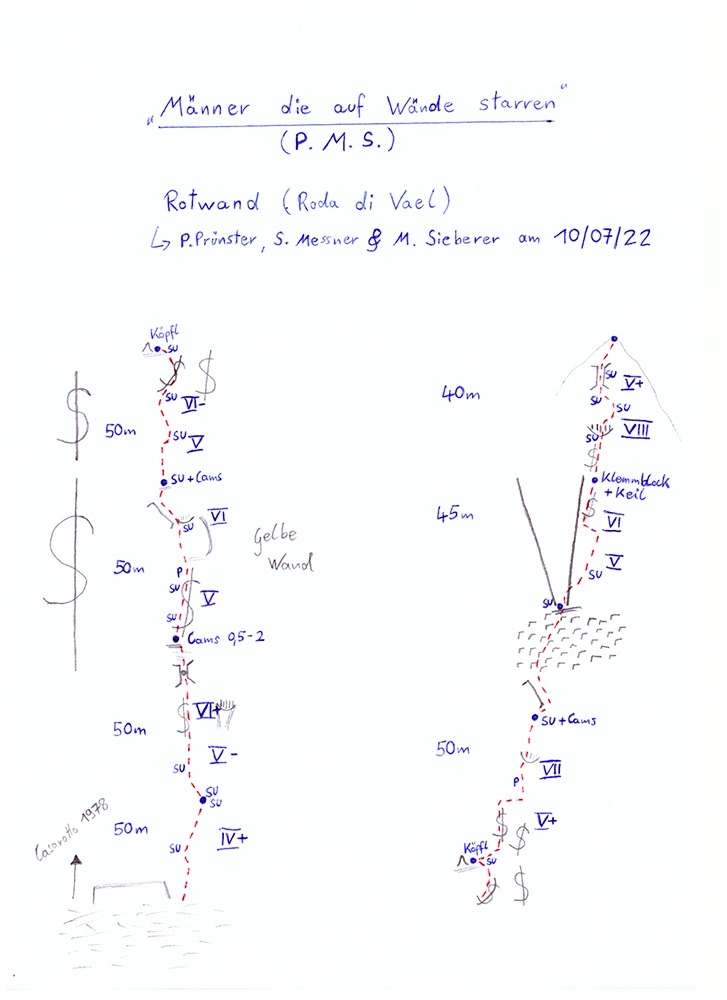 „Männer die auf Wände starren“
(P. M. S.)
Rotwand (Roda di Vael)
↳ P. Prünster, S. Messner & M. Sieberer am 10/07/22
Köpfl
SU
SU
VI-
50m
SU
V
SU + Cams
VI
SU
Gelbe
Wand
50m
P
SU
V
SU
Cams 0,5-2
VI+
50m
V-
SU
SU
SU
50m
IV+
SU
Casarotto 1978
40m
SU
V+
SU
SU
VIII
SU
Klemmblock
+ Keil
45m
VI
V
SU
SU
SU + Cams
50m
VII
P
V+
Köpfl
SU